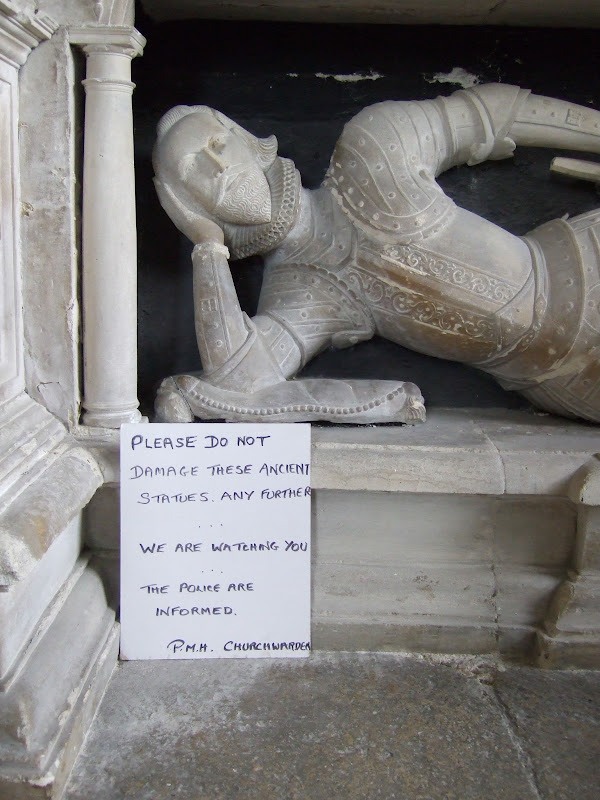 PLEASE DO NOT
DAMAGE THESE ANCIENT
STATUES. ANY FURTHER
...
WE ARE WATCHING YOU
...
THE POLICE ARE
INFORMED.
P.M.H. CHURCHWARDEN